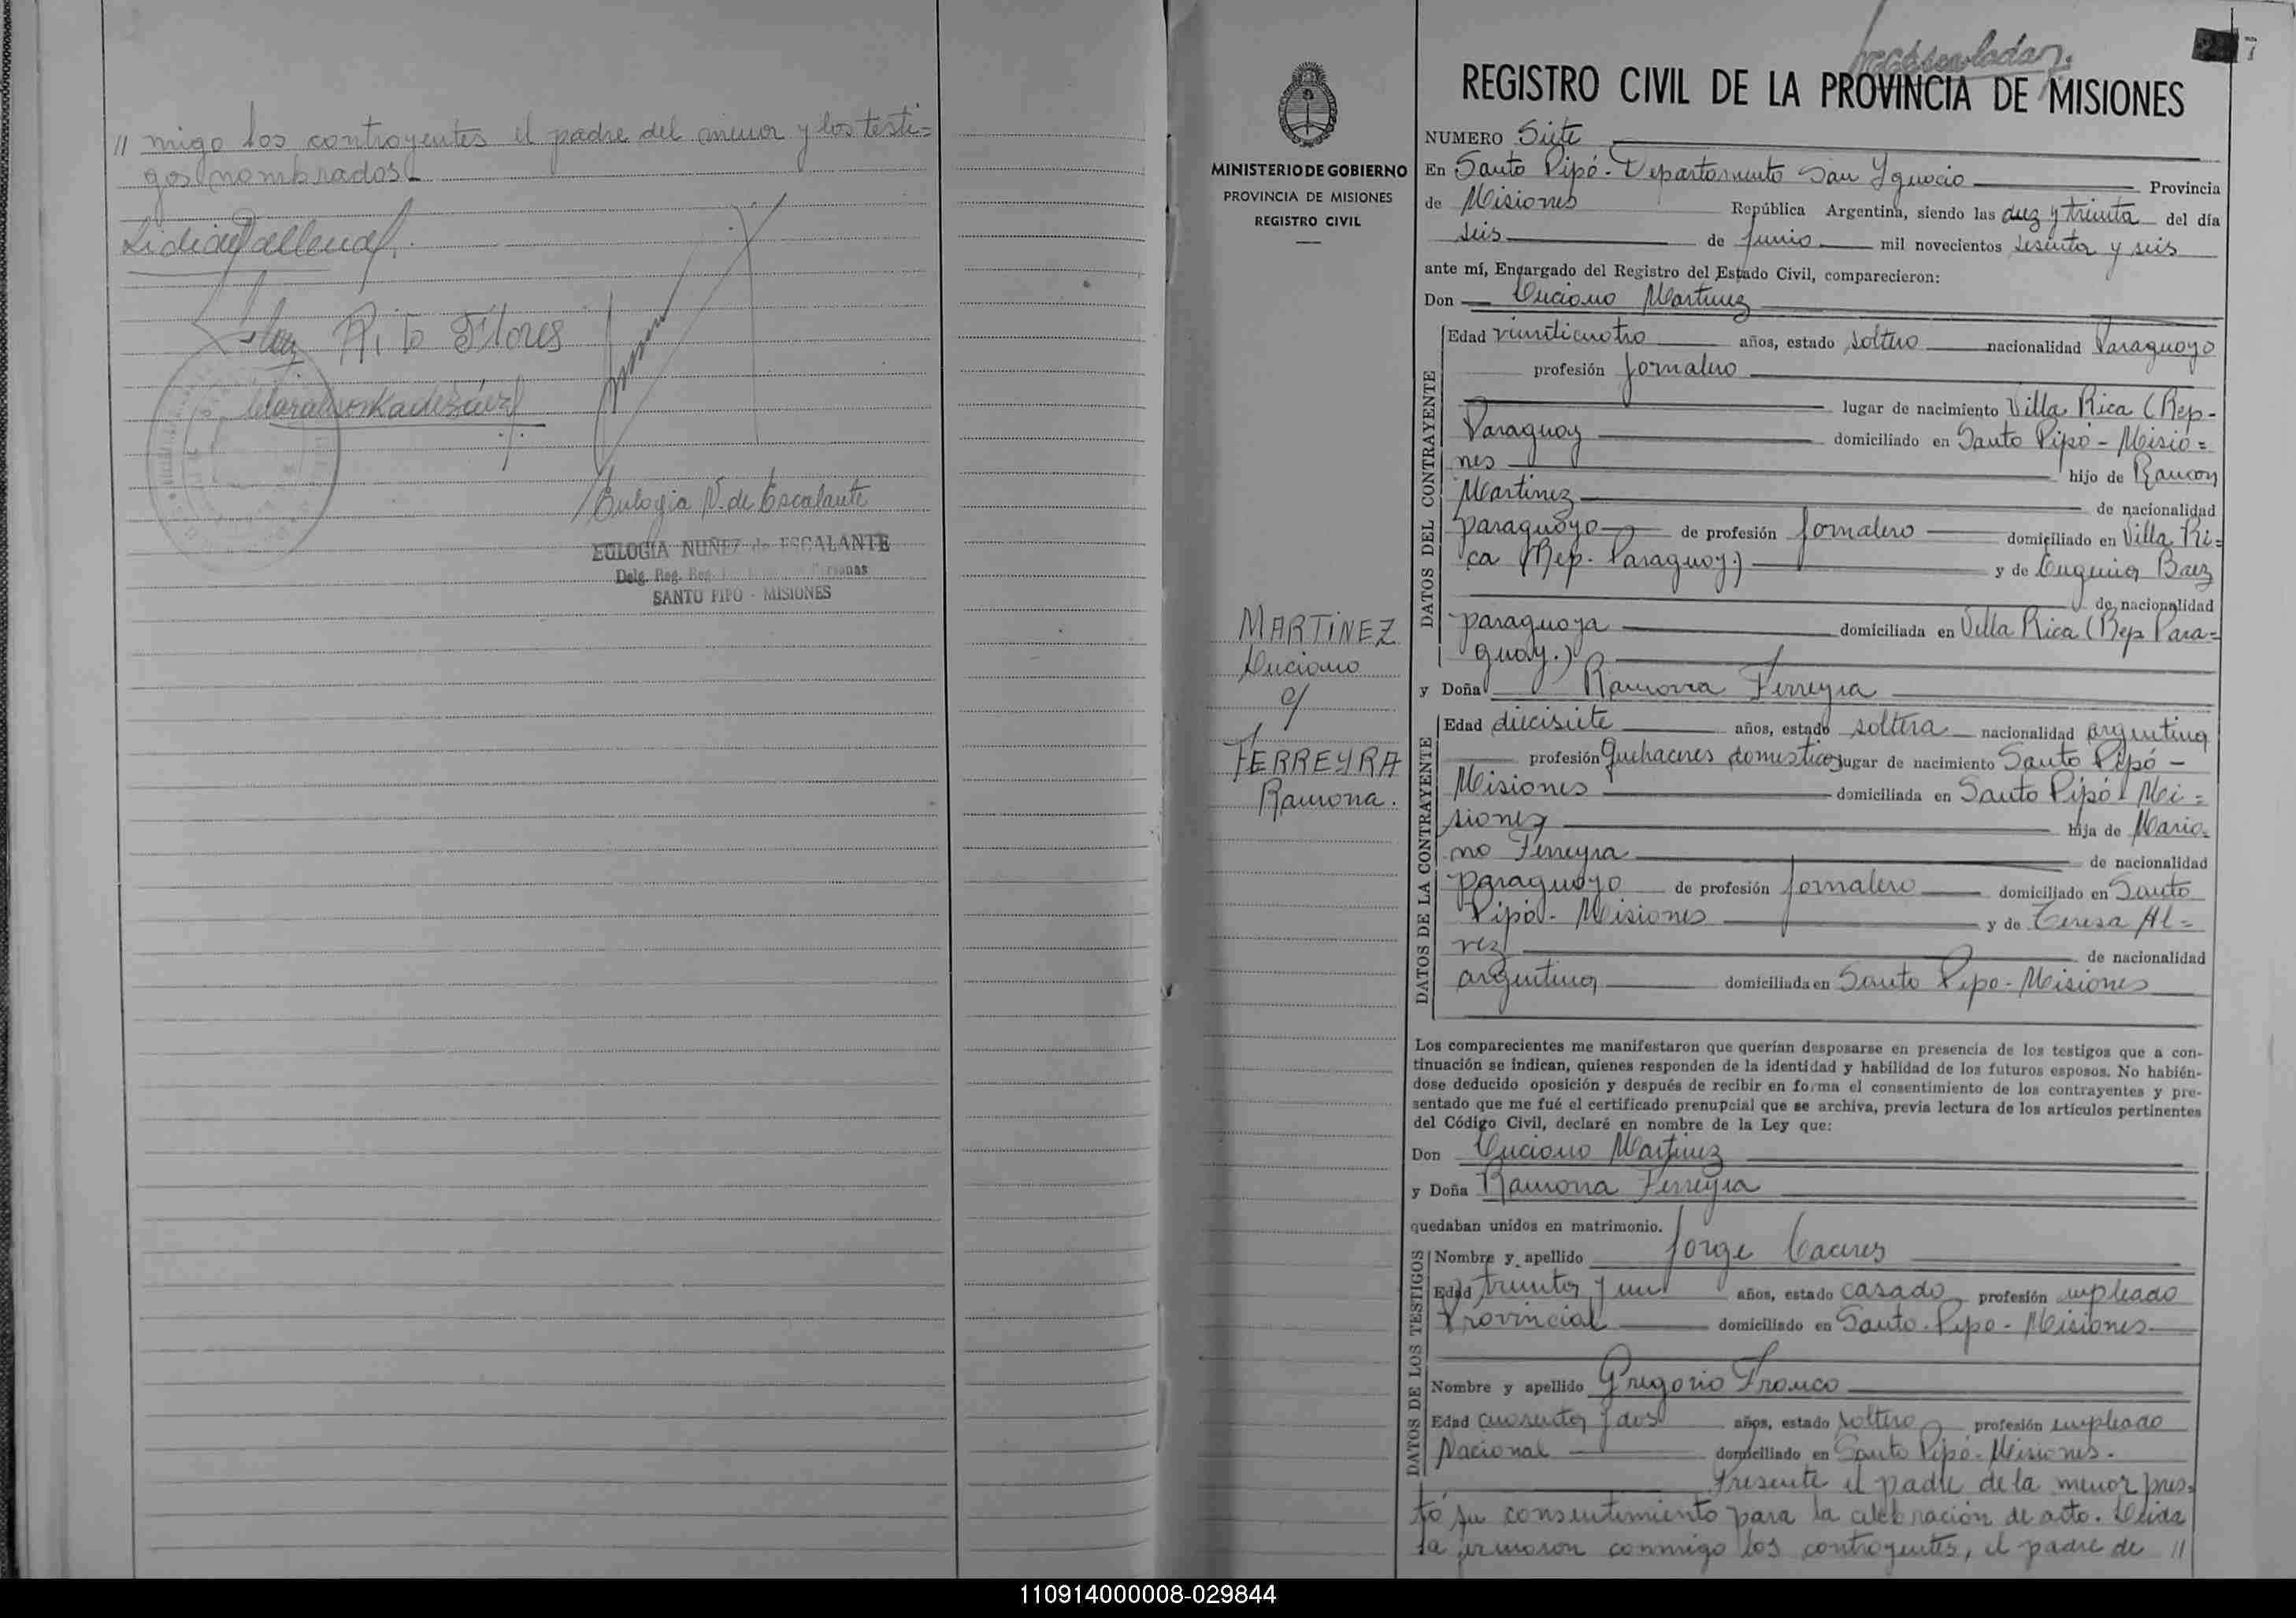 // migo los contrayentes el padre del menor y los testi=
gos nombrados
Rito Flores
Eulogia N. de Escalante
EULOGIA NUÑEZ de ESCALANTE
Delg. Reg. Reg. Personas
SANTO PIPO - MISIONES
7
REGISTRO CIVIL DE LA PROVINCIA DE MISIONES
MINISTERIO DE GOBIERNO
PROVINCIA DE MISIONES
REGISTRO CIVIL
MARTINEZ
Luciano
c/
FERREYRA
Ramona.
NUMERO Siete
En Santo Pipó - Departamento San Ygnacio Provincia
de Misiones República Argentina, siendo las diez y treinta del día
seis de Junio mil novecientos sesenta y seis
ante mí, Encargado del Registro del Estado Civil, comparecieron:
Don Luciano Martinez
DATOS DEL CONTRAYENTE
Edad veinticuatro años, estado soltero nacionalidad Paraguayo
profesión Jornalero
lugar de nacimiento Villa Rica (Rep-
Paraguay domiciliado en Santo Pipó - Misio=
nes hijo de Ramon
Martinez de nacionalidad
paraguayo de profesión Jornalero domiciliado en Villa Ri=
ca (Rep. Paraguay.) y de Eugenia Baez
de nacionalidad
paraguaya domiciliada en Villa Rica (Rep Para=
guay.)
y Doña Ramona Ferreyra
DATOS DE LA CONTRAYENTE
Edad diecisiete años, estado soltera nacionalidad argentina
profesión Quehaceres domesticos lugar de nacimiento Santo Pipó -
Misiones domiciliada en Santo Pipó - Mi=
siones hija de Maria=
no Ferreyra de nacionalidad
paraguayo de profesión Jornalero domiciliado en Santo
Pipó - Misiones y de Teresa Al=
vez de nacionalidad
argentina domiciliada en Santo Pipo - Misiones
Los comparecientes me manifestaron que querían desposarse en presencia de los testigos que a con-
tinuación se indican, quienes responden de la identidad y habilidad de los futuros esposos. No habién-
dose deducido oposición y después de recibir en forma el consentimiento de los contrayentes y pre-
sentado que me fué el certificado prenupcial que se archiva, previa lectura de los artículos pertinentes
del Código Civil, declaré en nombre de la Ley que:
Don Luciano Martinez
y Doña Ramona Ferreyra
quedaban unidos en matrimonio.
DATOS DE LOS TESTIGOS
Nombre y apellido Jorge Caceres
Edad treinta y un años, estado casado profesión empleado
Provincial domiciliado en Santo Pipo - Misiones
Nombre y apellido Gregorio Franco
Edad cuarenta y dos años, estado soltero profesión empleado
Nacional domiciliado en Santo Pipó - Misiones.
Presente el padre de la menor pres-
tó su consentimiento para la celebración de acto. Leida
la firmaron conmigo los contrayentes, el padre de //
110914000008-029844